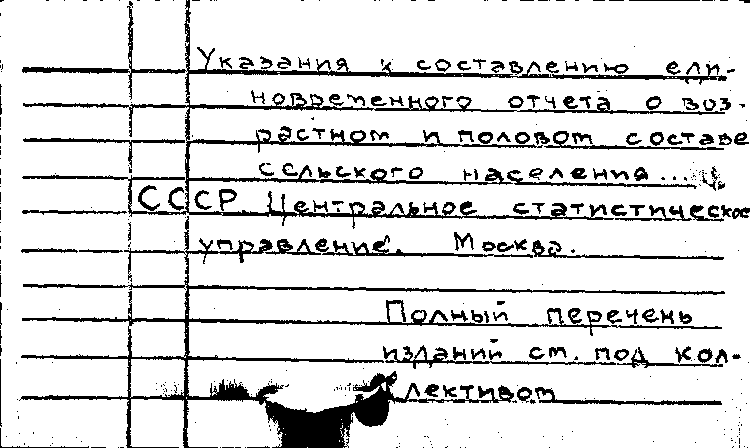 Указания к составлению еди-
новременного отчета о воз-
растном и половом составе
сельского населения...
СССР. Центральное статистическое
управление. Москва.
Полный перечень
изданий см. под кол-
лективом